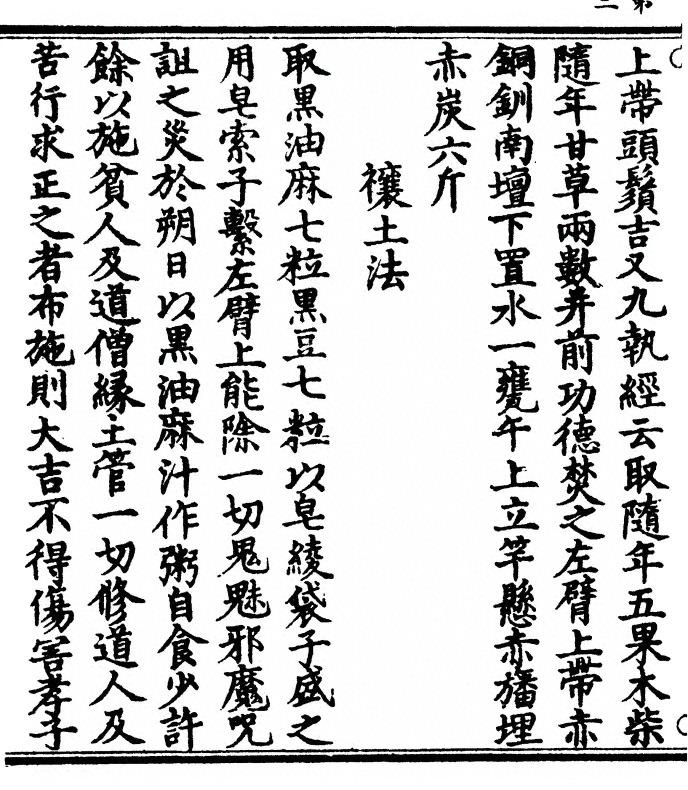 第二
上帶頭鬚吉又九執經云取隨年五果木柴
隨年甘草兩數并前功德焚之左臂上帶赤
銅釧南壇下置水一甕午上立竿懸赤旛埋
赤炭六斤
禳土法
取黒油麻七粒黒豆七粒以皂綾袋子盛之
用皂索子繫左臂上能除一切鬼魅邪魔呪
詛之災於朔日以黒油麻汁作粥自食少許
餘以施貧人及道僧縁土管一切修道人及
苦行求正之者布施則大吉不得傷害孝子